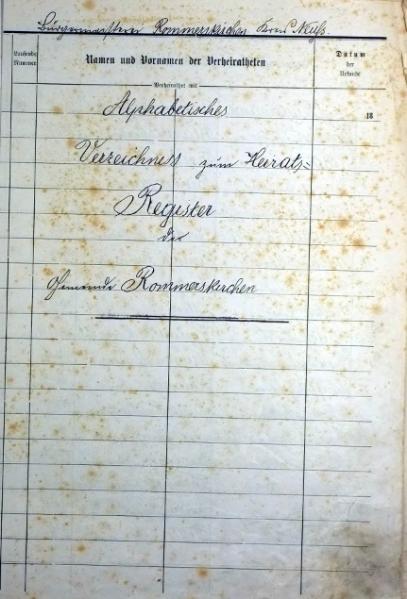 Bürgermeisterei Rommerskirchen Kreis Neuss.
Laufende Nummer
Namen und Vornamen der Verheiratheten
Datum der Urkunde
Verheirathet mit
Alphabetisches
18
Verzeichniss zum Heirats=
Register
der
Gemeinde Rommerskirchen